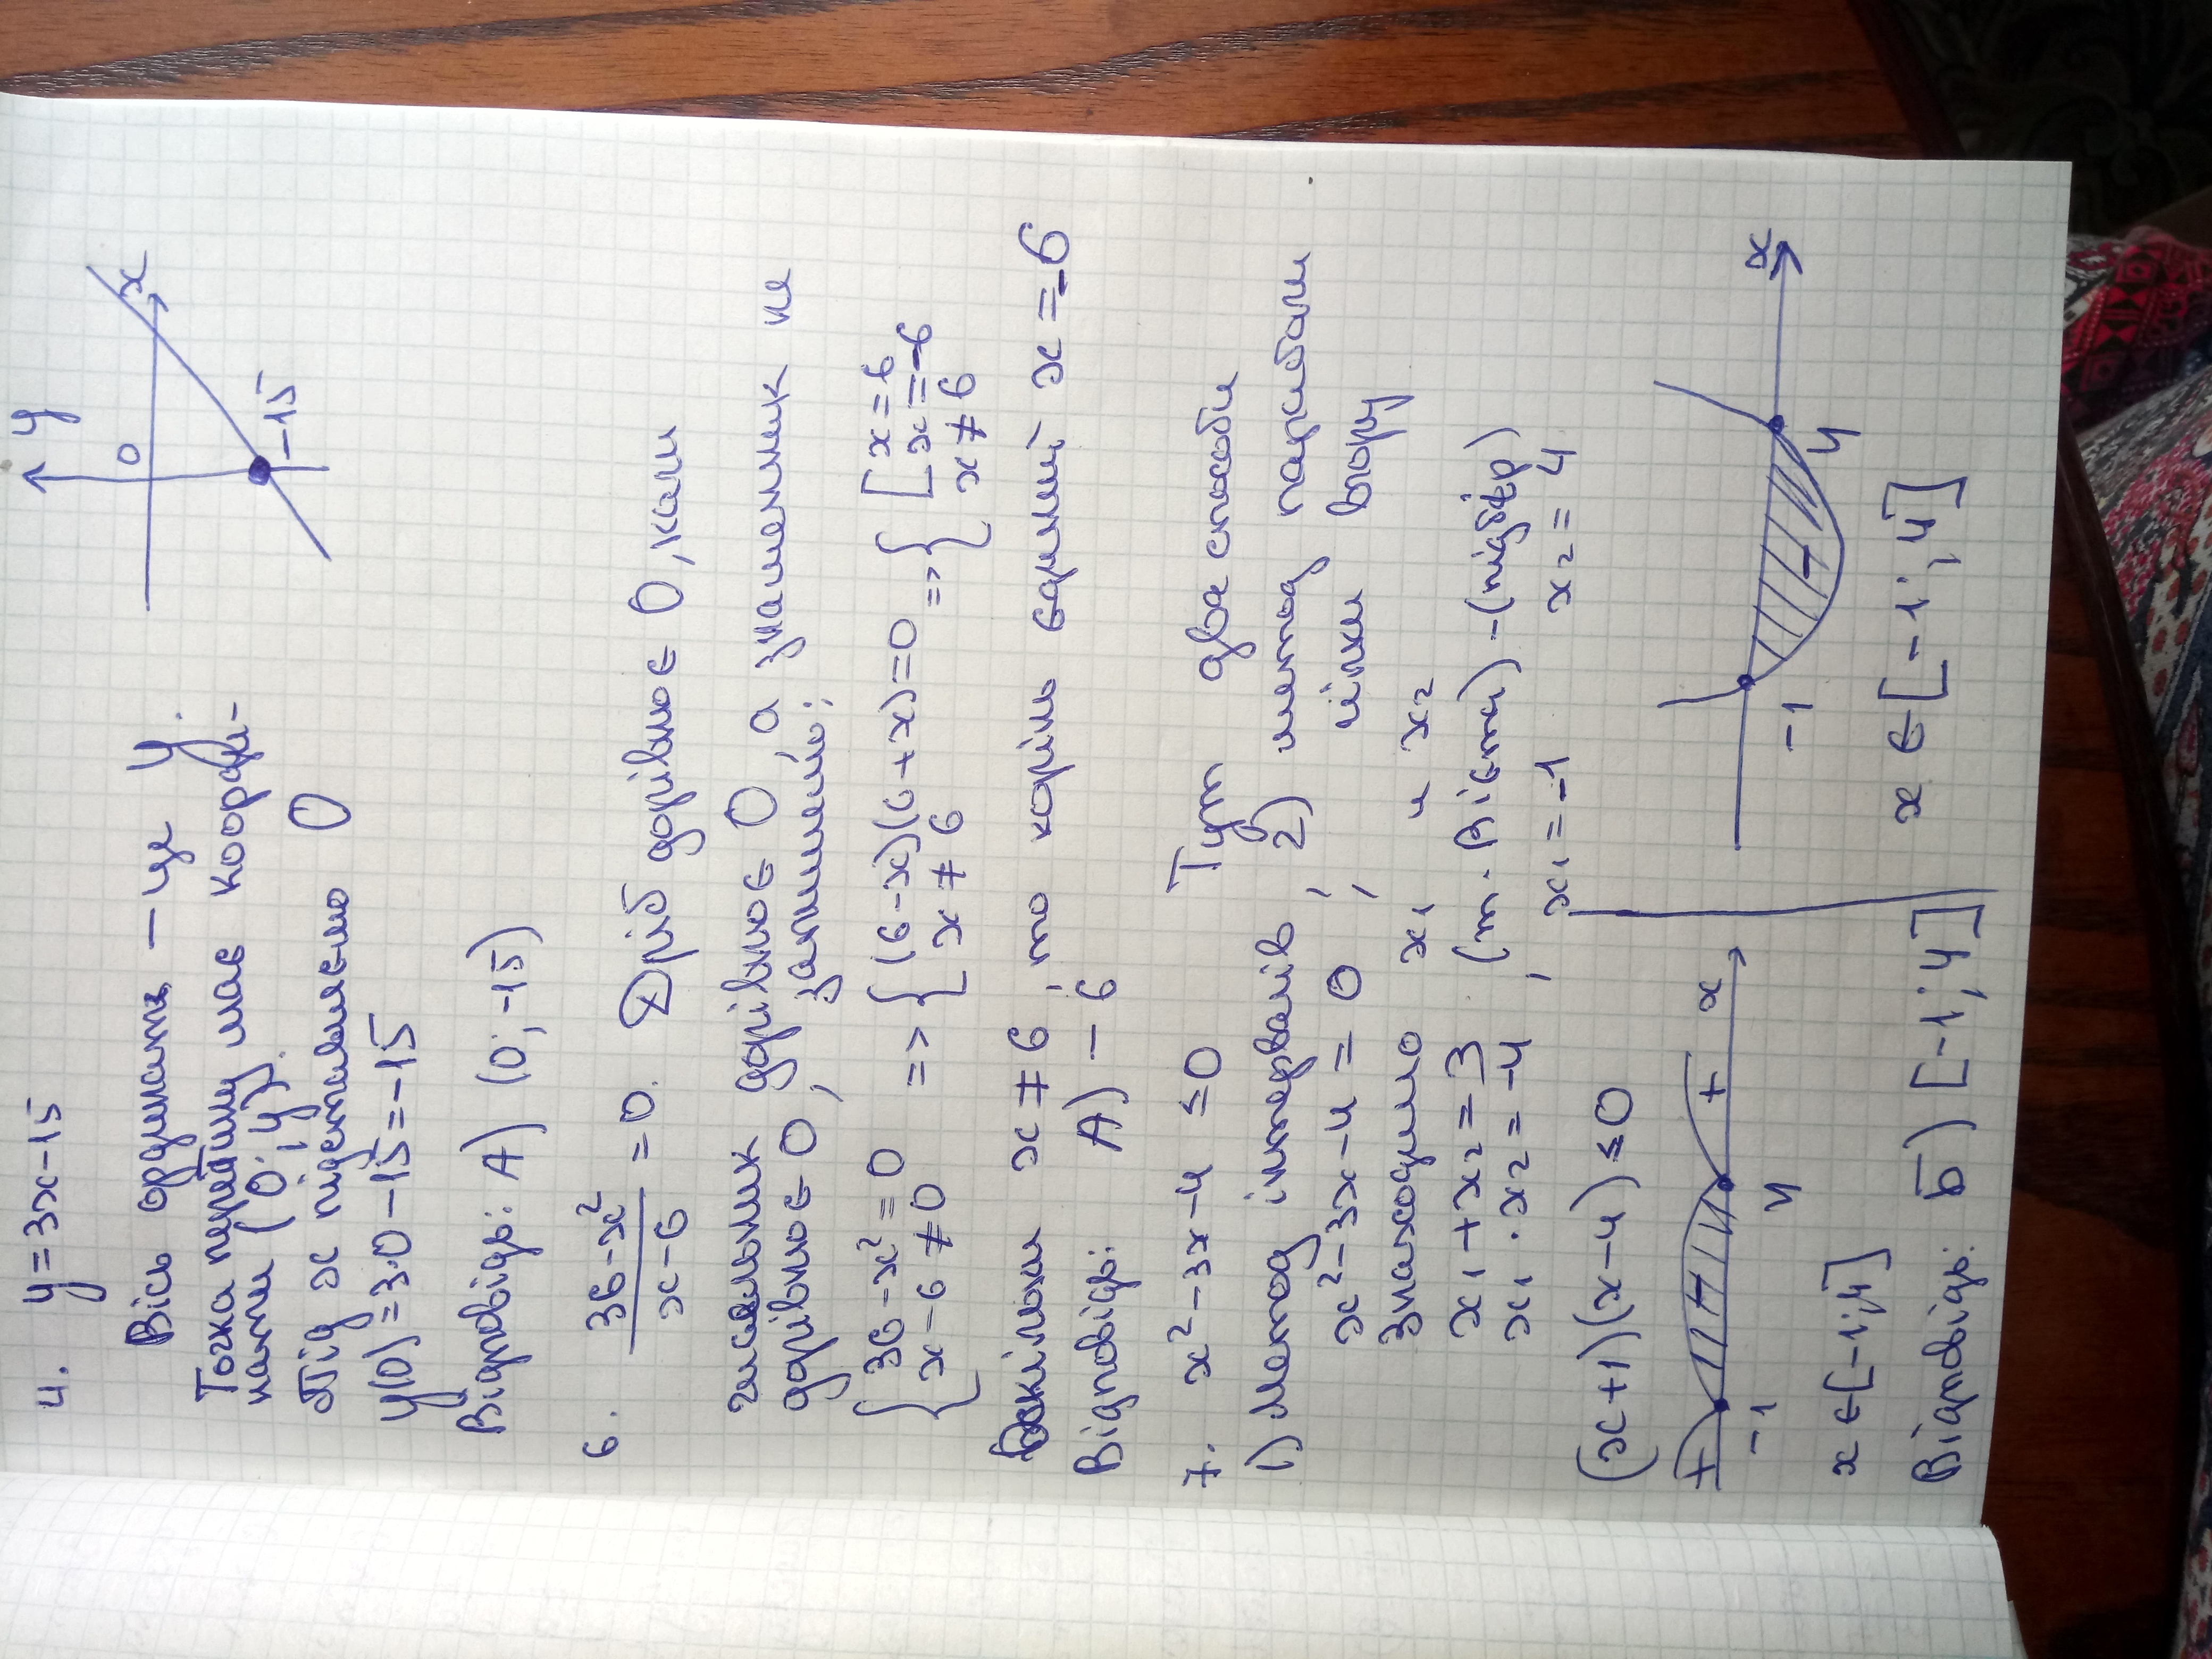 4. y = 3x - 15
y
0
x
-15
Вісь ординат – це У.
Точка перетину має коорди-
нати (0; y).
Під x підставляємо 0
y(0) = 3·0 - 15 = -15
Відповідь: А) (0; -15)
6. (36 - x²)/(x - 6) = 0. Дріб дорівнює 0, коли
чисельник дорівнює 0, а знаменник не
дорівнює 0, запишемо:
{ 36 - x² = 0 => { (6 - x)(6 + x) = 0 => { [ x = 6
x - 6 ≠ 0 x ≠ 6 x = -6
x ≠ 6
Оскільки x ≠ 6, то корінь єдиний x = -6
Відповідь: А) - 6
7. x² - 3x - 4 ≤ 0 Тут два способи
1) Метод інтервалів ; 2) метод параболи
x² - 3x - 4 = 0 ; гілки вгору
знаходимо x₁ и x₂
x₁ + x₂ = 3 (т. Вієта) - (підбір)
x₁ · x₂ = -4 , x₁ = -1 x₂ = 4
(x + 1)(x - 4) ≤ 0
+ - + x
-1 4
- x
-1 4
x ∈ [-1; 4]
x ∈ [-1; 4]
Відповідь: Б) [-1; 4]